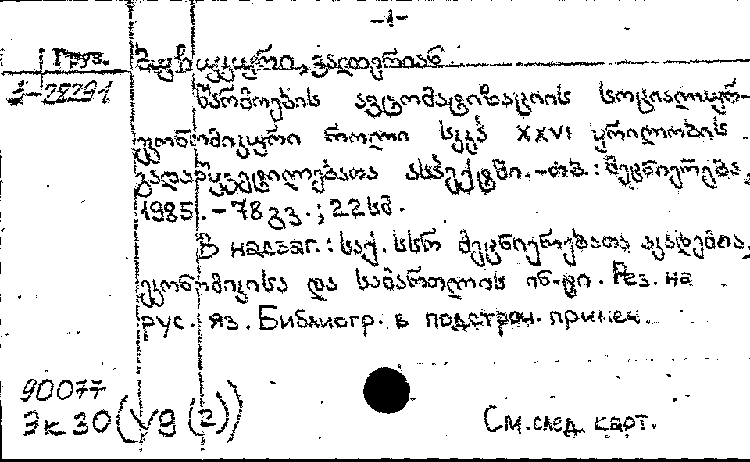 -1-
Груз.
3-22291
ვალერიან
წარმოების ავტომატიზაციის სოციალურ-
ეკონომიკური როლი სკკპ XXVI ყრილობის
გადაწყვეტილებათა ასპექტში.-თბ.: მეცნიერება,
1985.-78 გვ.; 22 სმ.
В надзаг.: საქ. სსრ მეცნიერებათა აკადემია,
ეკონომიკისა და სამართლის ინ-ტი. Рез. на
рус. яз. Библиогр. в подстроч. примеч.
90077
Эк 30(У9(2))
См. след. карт.